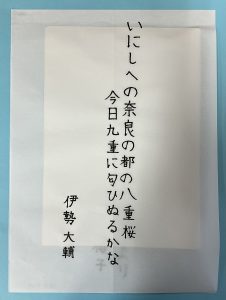 いにしへの奈良の都の八重桜
今日九重に匂ひぬるかな
伊勢大輔